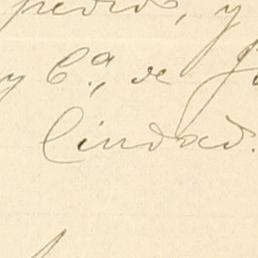 pedro, y
y C.ª, de
Ciudad.